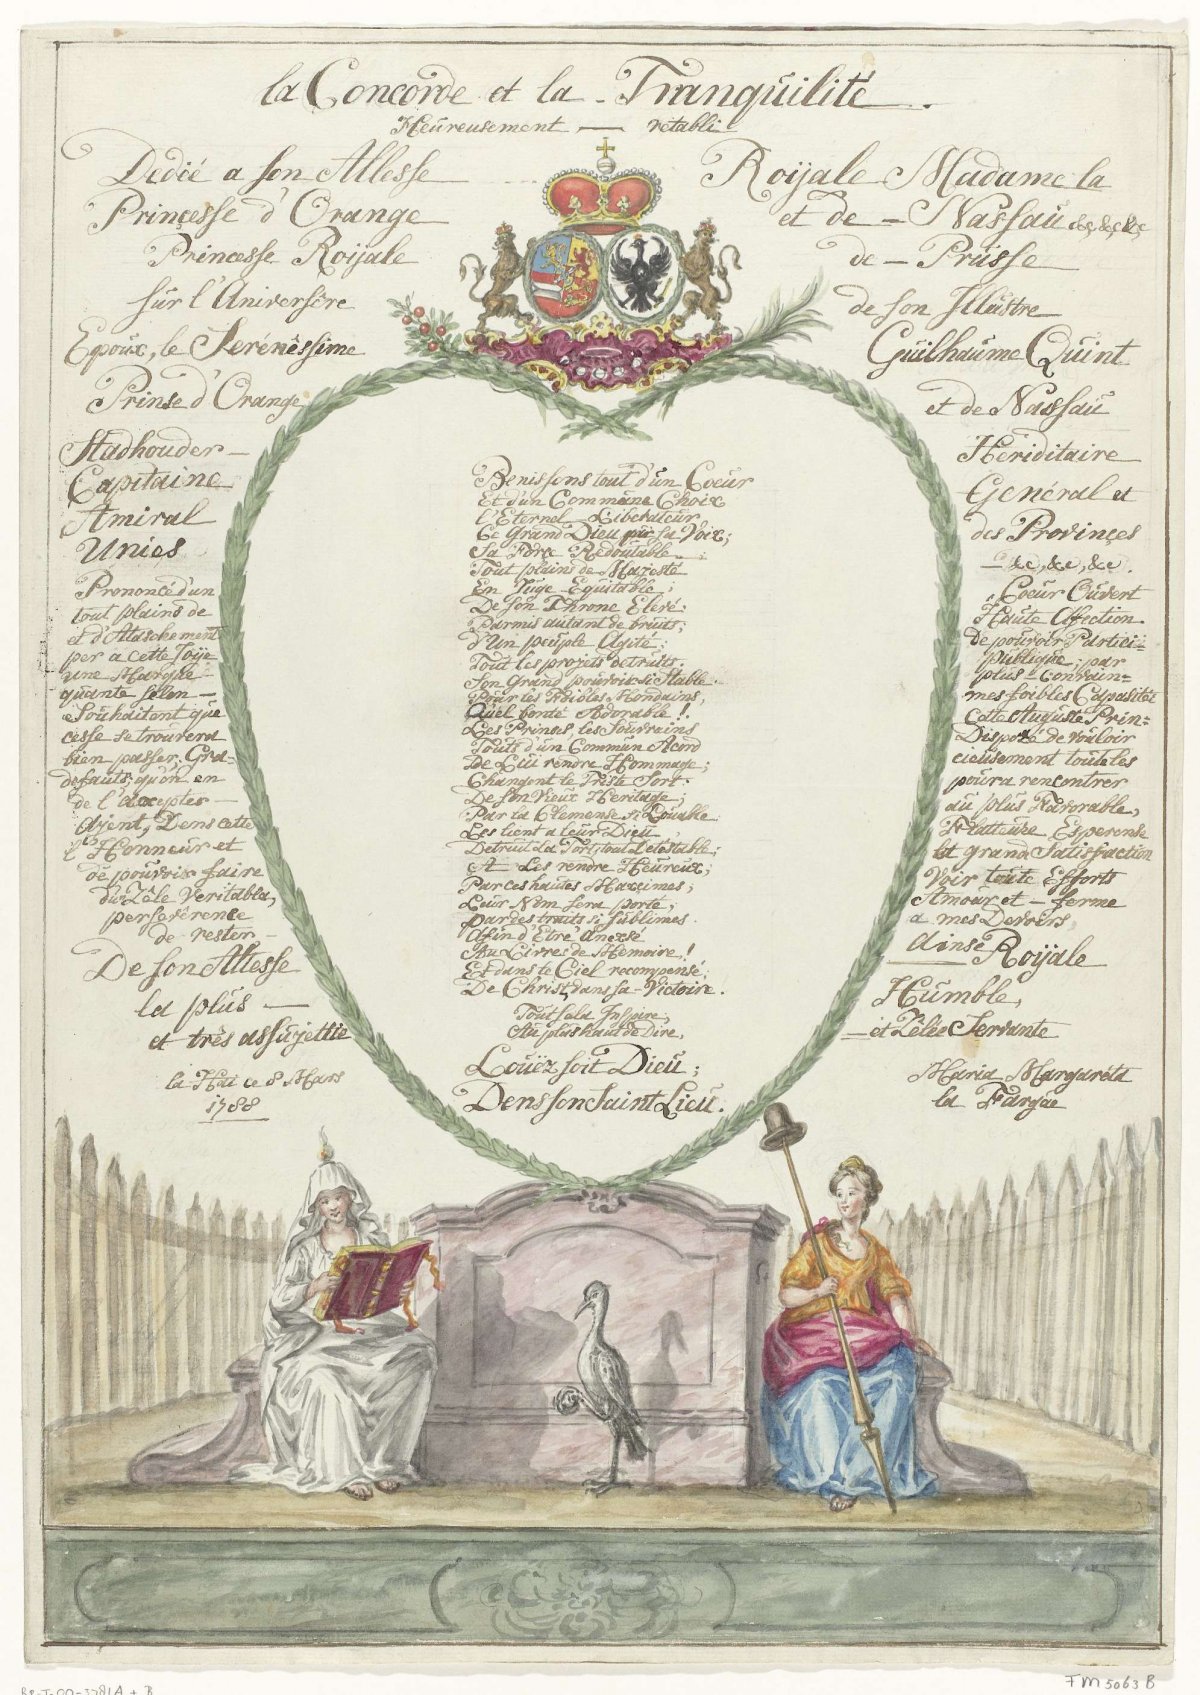 la Concorde et la - Tranquilité.
Heureusement — retabli
Dedié a son Altesse Roijale Madame la
Prinçesse d'Orange et de - Nassau &c, &c, &c
Princesse Roijale de - Prusse
sur l'Aniversére de son Illustre
Epoux, le Serénéssime Guilhaume Quint
Prinse d'Orange et de Nassau
Stadhouder - Heriditaire
Capitaine Genéral et
Amiral des Provinçes
Unies - &c, &c, &c.
Prononcé d'un Coeur Ouvert
tout plains de Haute Afection.
et d'Ataschement De pouvoir Partici-
per a cette Joije publique; par
une Marque plus - convain=
quante selon - mes foibles Capasitéé
Souhaitent que Cette Auguste Prin=
cesse se trouvera Dispozé de vouloir
bien passer Gra- cieusement toute les
defauts, qu'on en poura rencontrer
de l'axepter - au plus Favorable,
Ajent, Dens cette Flatteuze Esperense
l'Honneur et et grande Satisfaction
de pouvoir faire Voir toute Efforts
du Zêle Veritable, Amour et - ferme
perseverence a mes Devoirs,
de rester - ainse
De son Altesse Roijale
la plus - Humble,
et très assujettie - et Zêlée Servante
la Haie ce 8 Mars
1788
Maria Margaréta
la Fargue
Benissons tout d'un Coeur
Et d'un Commune Choix
l'Eternel Liberateur
Ce Grand Dieu qui sa Voix;
Sa Force Redoutable
Tout plains de Majesté
En Juge Equitable,
De son Throne Elevé;
Parmis autant de bruits;
d'Un peuple Agité;
Tout les projets detruits.
Son Grand pouvoir si Stable.
Pour les Foibles Mondains,
Quel bonté Adorable!
Les Prinses, les Souvrains
Touts d'un Commun Acord
De Lui rendre Hommage;
Changent le Triste Sort
De son Vieux Heritage;
Par la Clemense si Louable
Les tient a leur Dieu,
Detruit La Tort, tout Detestable;
A Les rendre Heureux;
Par ces hautes Maxsimes;
Leur Nom sera porté,
par des traits si sublimes.
Afin d'Etré Anexsé
Au Livres de Memoire!
Et dans le Ciel recompensé,
De Christ, dans sa - Victoire.
Tout sela Inspire,
Au plus haut de Dire,
Louëz soit Dieu;
Dens son Saint Lieu.
FM 5063 B